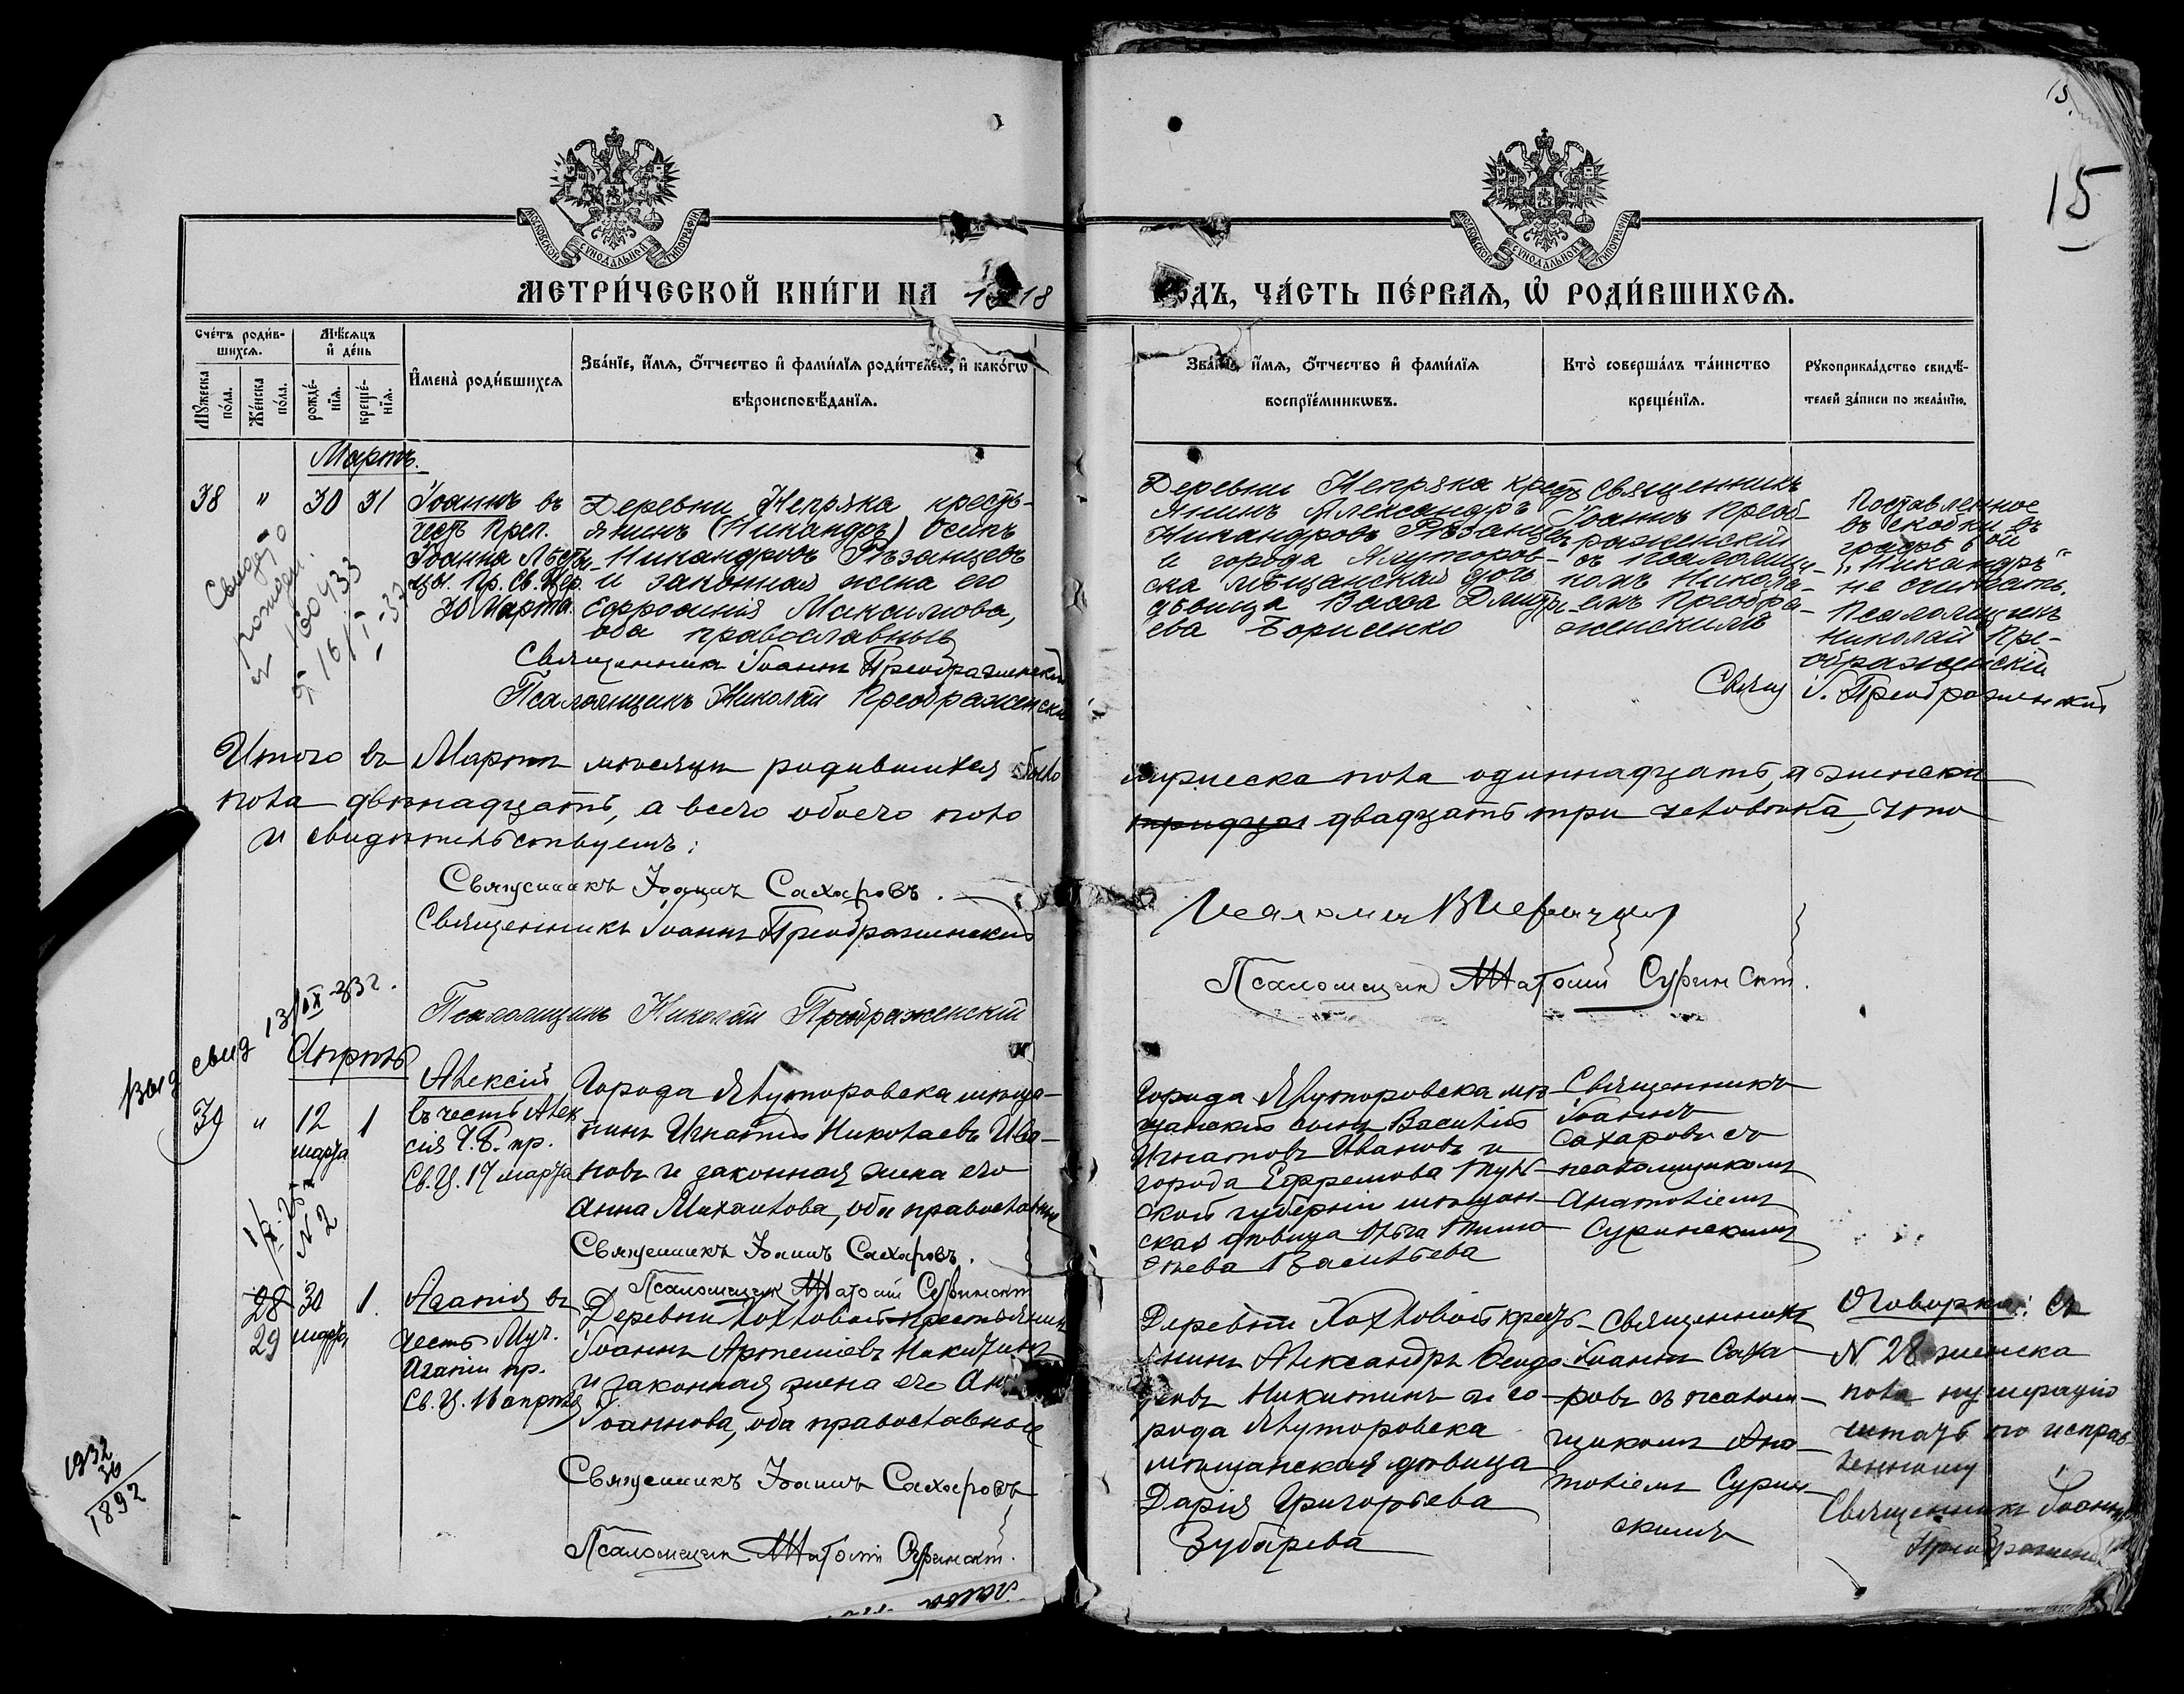 15
МОСКОВСКОЙ СѴНОДАЛЬНОЙ ТИПОГРАФІИ
МОСКОВСКОЙ СѴНОДАЛЬНОЙ ТИПОГРАФІИ
МЕТРИ́ЧЕСКОЙ КНИ́ГИ НА 1918
ГОДЪ, ЧА́СТЬ ПЕ́РВАѦ, Ѡ҆ РОДИ́ВШИХСѦ.
Счетъ родив-
шихсѧ.
Мꙋжеска
пола.
Женска
пола.
Мѣсѧцъ
и день
рожде-
нїѧ.
креще-
нїѧ.
Имена родившихсѧ
Званїе, имѧ, отчество и фамилїѧ родителей, и какогѡ
вѣроисповѣданїѧ.
Званїе, имѧ, отчество и фамилїѧ
воспрїемникѡвъ.
Кто совершалъ таинство
крещенїѧ.
Рꙋкоприкладство свидѣ-
телей записи по желанїю.
Мартъ.
38 " 30 31
Іоаннъ въ
честь Преп.
Іоанна Лѣстви-
цы. Пр. Св. Цер.
30 Марта.
Деревни Непряка кресть-
янинъ (Никандръ) Осипъ
Никандровъ Рѣзанцевъ
и законная жена его
Евфросинія Максимова,
оба православные
Священникъ Іоаннъ Преображенскій
Псаломщикъ Николай Преображенскій
Деревни Непряка крест
янинъ Александръ
Никандровъ Рѣзанцевъ
и города Ялуторов-
ска мѣщанская дочь
дѣвица Васса Дмитрі-
ева Борисенко
Священникъ
Іоаннъ Преоб-
раженскій
съ псаломщи-
комъ Никола-
емъ Преобра-
женскимъ
Поставленное
въ скобки въ
графѣ 6ой
"Никандръ"
не считать.
Псаломщикъ
Николай Пре-
ображенскій
Свящ І. Преображенскій
160433
16/I-37
Итого въ Мартѣ мѣсяцѣ родившихся было
мужеска пола одиннадцать, а женска
пола двѣнадцать, а всего обоего пола
тридца двадцать три человѣка, что
и свидѣтельствуемъ:
Священникъ Іоаннъ Сахаровъ.
Священникъ Іоаннъ Преображенскій
Псаломщикъ Николай Преображенскій
Псаломщикъ Анатолій Суринскій.
Выд свид 13/IX-33г.
Апрѣль
39 " 12 марта 1
Алексій
въ честь Алек
сія Ч.Б. пр.
Св. Ц. 17 марта
Города Ялуторовска мѣща-
нинъ Игнатій Николаевъ Ива-
новъ и законная жена его
Анна Михаилова, оба православные
Священникъ Іоаннъ Сахаровъ.
Псаломщикъ Анатолій Суринскій
Города Ялуторовска мѣ-
щанскій сынъ Василій
Игнатовъ Ивановъ и
города Ефремова Туль-
ской губерніи мѣщан-
ская дѣвица Ольга Тимо-
ѳеева Васильева
Священникъ
Іоаннъ
Сахаровъ съ
псаломщикомъ
Анатоліемъ
Суринскимъ
N 2
28 30 1.
29 марта
Агапія въ
честь Муч.
Агапіи пр.
Св. Ц. 16 апрѣля
Деревни Хохловой крестьянинъ
Іоаннъ Артеміевъ Никитинъ
и законная жена его Анна
Іоаннова, оба православные
Священникъ Іоаннъ Сахаровъ
Псаломщикъ Анатолій Суринскій.
Деревни Хохловой кресть-
янинъ Александръ Ѳеодо
ровъ Никитинъ и го-
рода Ялуторовска
мѣщанская дѣвица
Дарія Григорьева
Зубарева
Священникъ
Іоаннъ Саха-
ровъ съ псалом-
щикомъ Ана-
толіемъ Сурин-
скимъ
Оговорка: Съ
N 28 женска
пола нумерацію
читать по исправ-
ленному
Священникъ Іоаннъ
Преображенскій
1932
1892